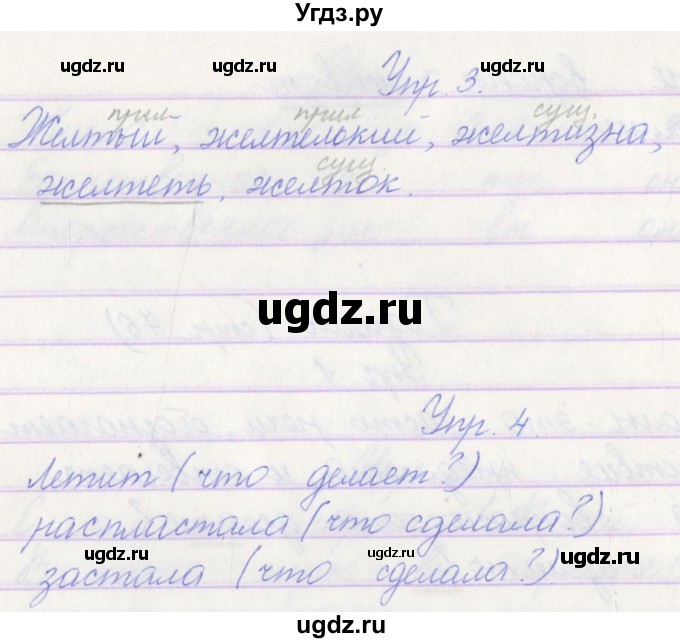 Угдз.ру
ugdz.ru ugdz.ru ugdz.ru
Упр. 3.
прил прил сущ.
Желтый, желтенький, желтизна,
сущ.
желтеть, желток.
ugdz.ru
Упр. 4.
летит (что делает?)
распластала (что сделала?)
ugdz.ru ugdz.ru ugdz.ru
застала (что сделала?)
ugdz.ru ugdz.ru ugdz.ru